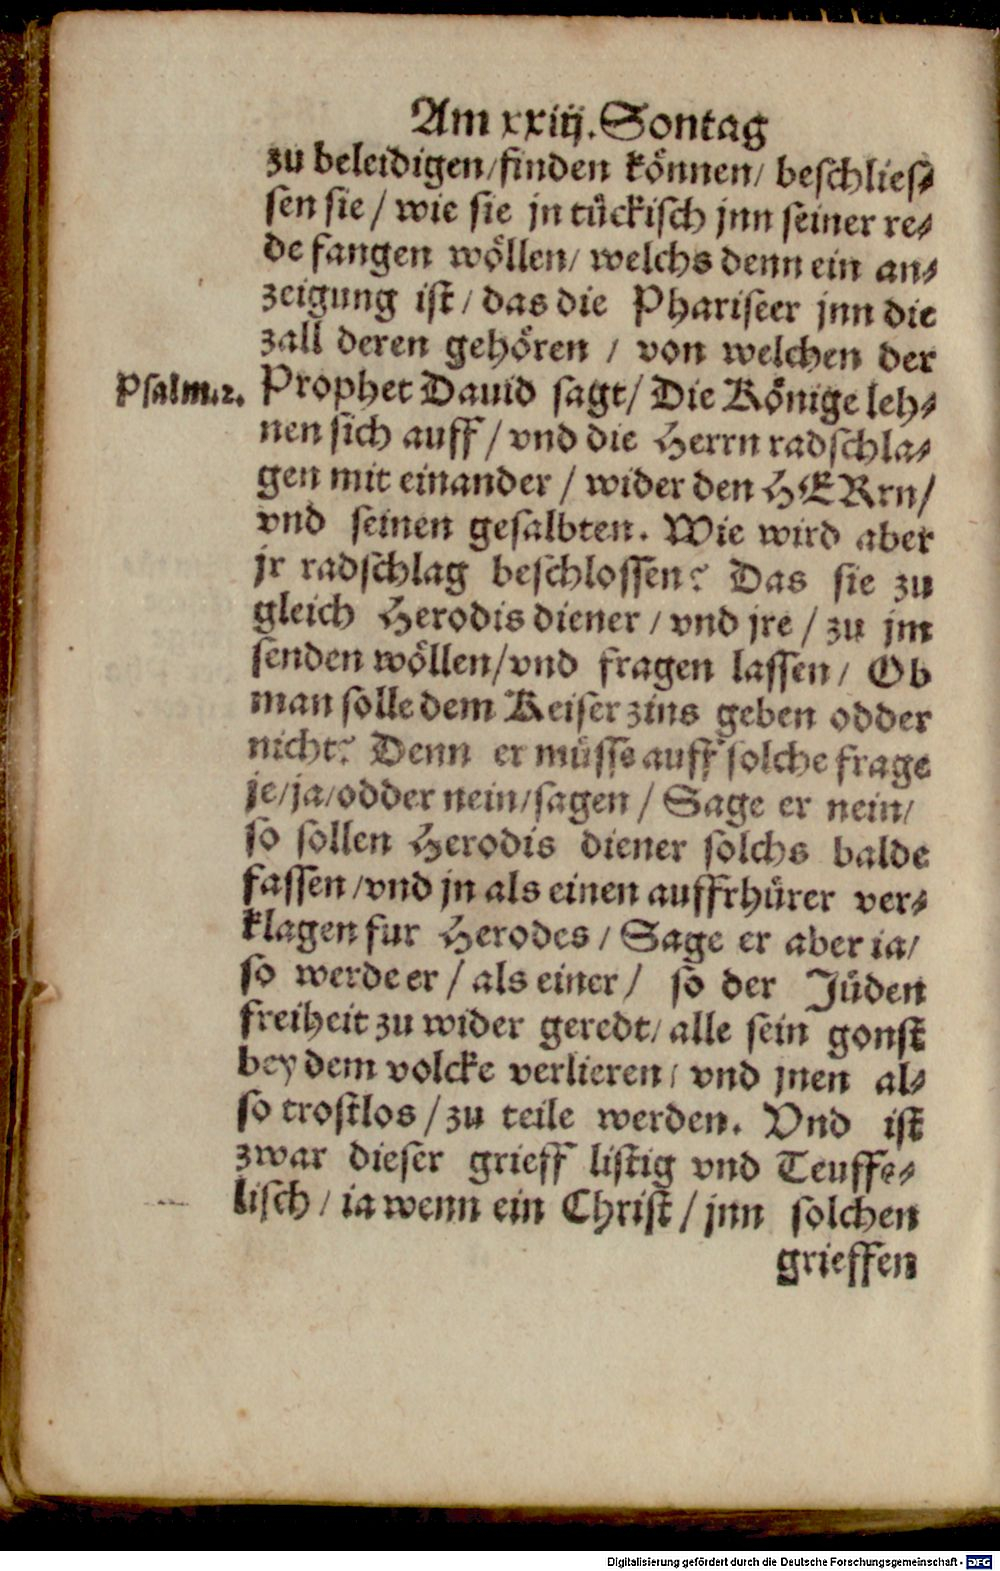 Am xxiij. Sontag
zu beleidigen/ finden können/ beschlies⸗
sen sie / wie sie jn tückisch jnn seiner re⸗
de fangen wöllen/ welchs denn ein an⸗
zeigung ist / das die Phariseer jnn die
zall deren gehören / von welchen der
Psalm.2. Prophet Dauid sagt/ Die Könige leh⸗
nen sich auff / vnd die Herrn radschla⸗
gen mit einander / wider den HERrn/
vnd seinen gesalbten. Wie wird aber
jr radschlag beschlossen? Das sie zu
gleich Herodis diener / vnd jre / zu jm
senden wöllen/ vnd fragen lassen/ Ob
man solle dem Keiser zins geben odder
nicht? Denn er müsse auff solche frage
je/ ja/ odder nein/ sagen / Sage er nein/
so sollen Herodis diener solchs balde
fassen / vnd jn als einen auffrhürer ver⸗
klagen fur Herodes / Sage er aber ia/
so werde er / als einer / so der Jüden
freiheit zu wider geredt/ alle sein gonst
bey dem volcke verlieren / vnd jnen al⸗
so trostlos / zu teile werden. Vnd ist
zwar dieser grieff listig vnd Teuffe⸗
lisch / ia wenn ein Christ / jnn solchen
grieffen
Digitalisierung gefördert durch die Deutsche Forschungsgemeinschaft - DFG